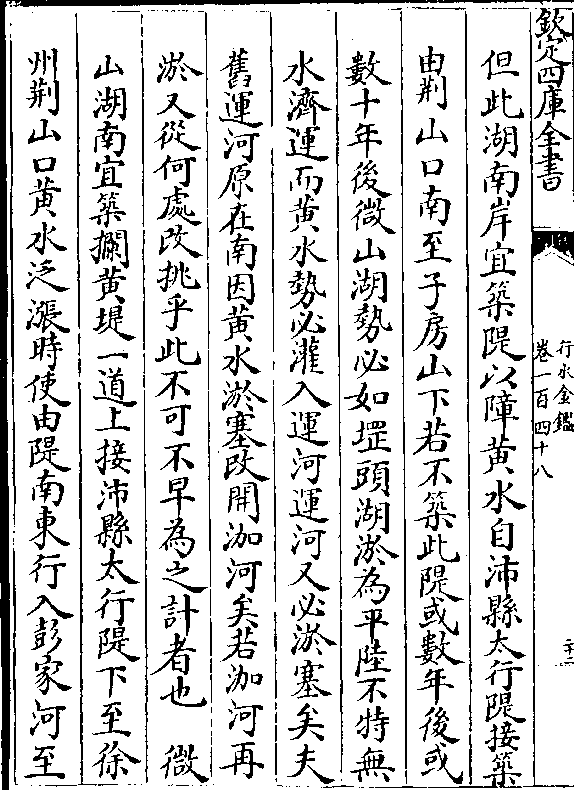 欽定四庫全書
行水金鑑
卷一百四十八
二十二
但此湖南岸宜築隄以障黄水自沛縣太行隄接築
由荆山口南至子房山下若不築此隄或數年後或
數十年後微山湖勢必如㘰頭湖淤為平陸不特無
水濟運而黄水勢必灌入運河運河又必淤塞矣夫
舊運河原在南因黄水淤塞改開泇河矣若泇河再
淤又從何處改挑乎此不可不早為之計者也 微
山湖南宜築攔黄堤一道上接沛縣太行隄下至徐
州荆山口黄水泛漲時使由隄南東行入彭家河至